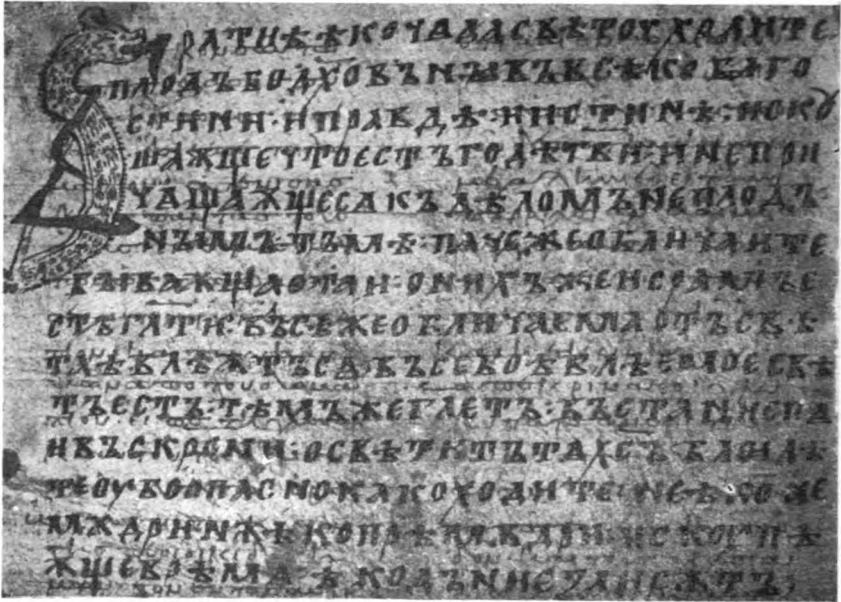 БРАТЦѢѢКОЧАДАСВѢТОУХОДИТЕ
ПЛОДЪБОДХОВЪНЪІВЪВСѢКОБЛГО
СТИНИ·ИПРАВДѢ·ИИСТИНѢ:ИСКОУ
ШАѪЩЕЧТОЕСТЪГОДѢБВИ·ИНЕПРИ
ЧАЩАѪЩЕСѦКЪДѢЛОМЪНЕПЛОДЪ
НЪІМЪТЪМѢ·ПАЧЕЖЕОБЛИЧАИТЕ
БЪІВАѪЩАОТАИ·ОНИХЪЖЕИСРАМЪЕ
СТЪГЛАТИ·ВЪСѢЖЕОБЛИЧАЕМАОТЪСВѢ
ТАѢВЛѢѪТЪСѦ·ВЪСЕБОѢВЛѢЕМОЕСВѢ
ТЪЕСТЪ·ТѢМЪЖЕГЛЕТЪ·ВЪСТАНИСПѦ
ИВЪСКРСНИ·ОСВѢТИТЪТѦХСЪБЛЮДѢ
ТЕОУБООПАСНОКАКОХОДИТЕ·НЕѢКОНЕ
МѪДРИНѪѢКОПРѢМѪДРИ·ИСКОУПѢ
ѪЩЕВРѢМѦ·ѢКОДЪНИЕ